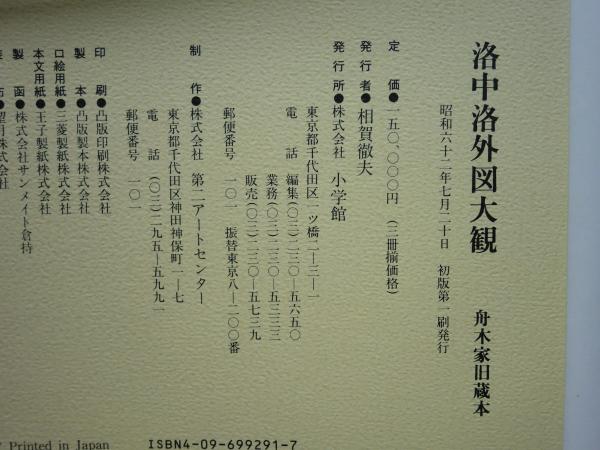 洛中洛外図大観 舟木家旧蔵本
昭和六十二年七月二十日 初版第一刷発行
定価●一五〇、〇〇〇円 (三冊揃価格)
発行者●相賀徹夫
発行所●株式会社 小学館
東京都千代田区一ツ橋二―三―一
電話 編集(〇三)二三〇―五六五〇
業務(〇三)二三〇―五三三三
販売(〇三)二三〇―五七三九
郵便番号 一〇一 振替東京八―二〇〇番
制作●株式会社 第二アートセンター
東京都千代田区神田神保町一―七
電話 (〇三)二九五―五九九一
郵便番号 一〇一
印刷●凸版印刷株式会社
製本●凸版製本株式会社
口絵用紙●三菱製紙株式会社
本文用紙●王子製紙株式会社
製函●株式会社サンメイト倉持
●望月株式会社
Printed in Japan
ISBN4-09-699291-7